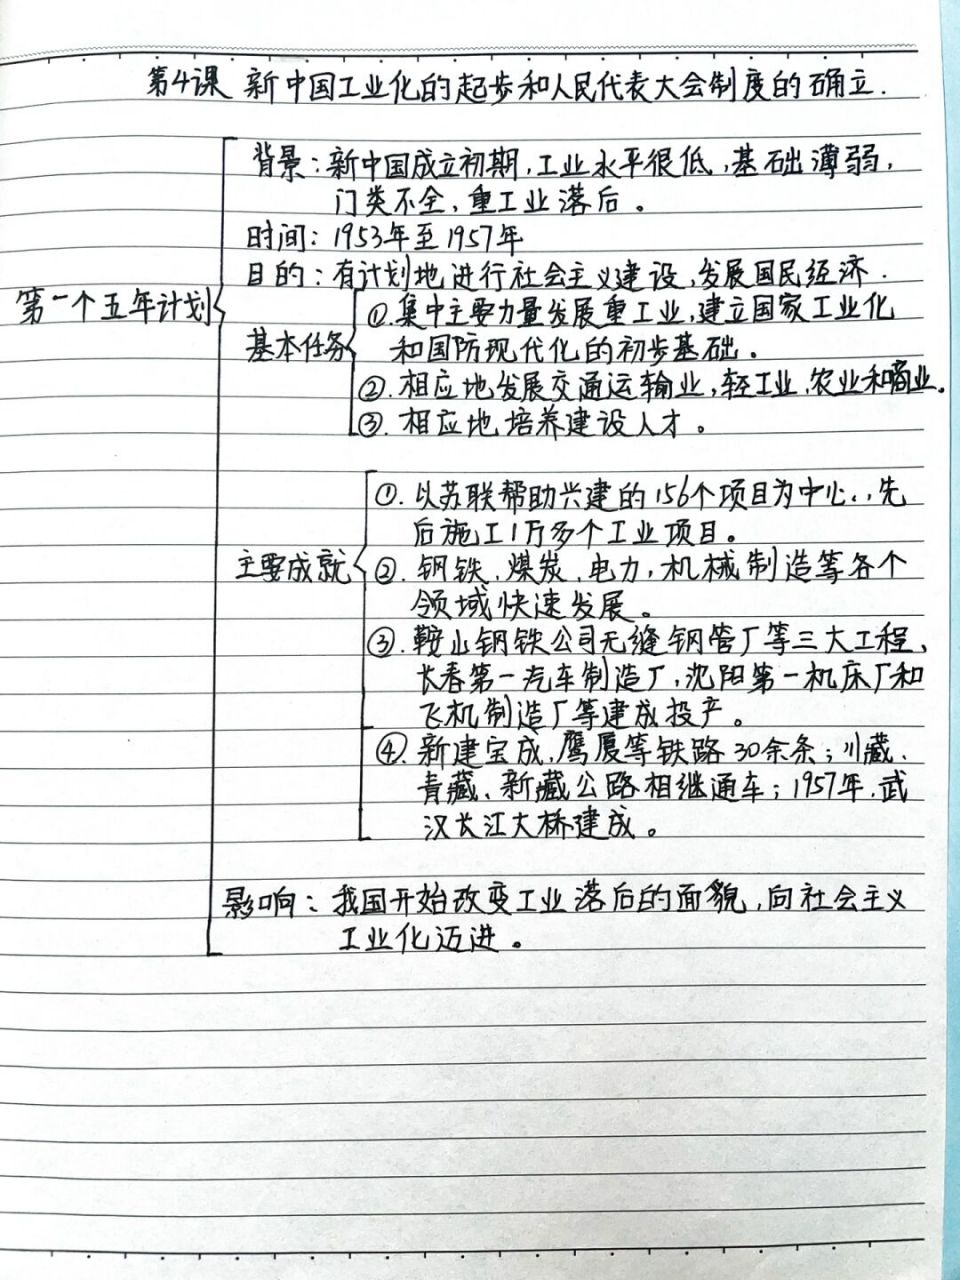 第4课 新中国工业化的起步和人民代表大会制度的确立.
背景：新中国成立初期,工业水平很低,基础薄弱,
门类不全,重工业落后。
时间：1953年至1957年
目的：有计划地进行社会主义建设,发展国民经济.
第一个五年计划
基本任务
①.集中主要力量发展重工业,建立国家工业化
和国防现代化的初步基础。
②.相应地发展交通运输业,轻工业、农业和商业。
③.相应地培养建设人才。
主要成就
①.以苏联帮助兴建的156个项目为中心,,先
后施工1万多个工业项目。
②.钢铁、煤炭、电力,机械制造等各个
领域快速发展。
③.鞍山钢铁公司无缝钢管厂等三大工程、
长春第一汽车制造厂,沈阳第一机床厂和
飞机制造厂等建成投产。
④.新建宝成、鹰厦等铁路30余条；川藏、
青藏、新藏公路相继通车；1957年,武
汉长江大桥建成。
影响：我国开始改变工业落后的面貌,向社会主义
工业化迈进。